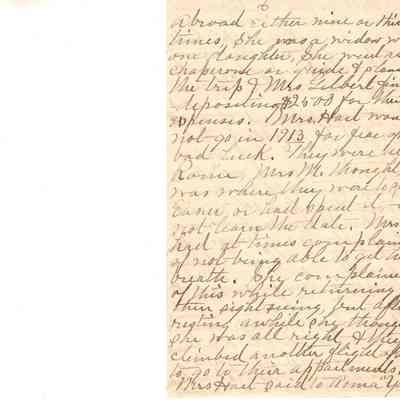 abroad either nine or
times, She was a widow
one daughter, She went as
chaperone or guide & planned
the trip & Mrs Gilbert
depositing $2500 for their
expenses. Mrs. Hart
not go in 1913 for fear of
bad luck. They were
Rome, Mrs M. thought
was where they were to
not learn the date. Mrs
had at times complained
of not being able to get
breath. She complained
of this while returning
their sightseeing, but after
resting awhile she thought
she was all right & they
climbed another flight
to go to their appartments,
Mrs Hart said to Roma